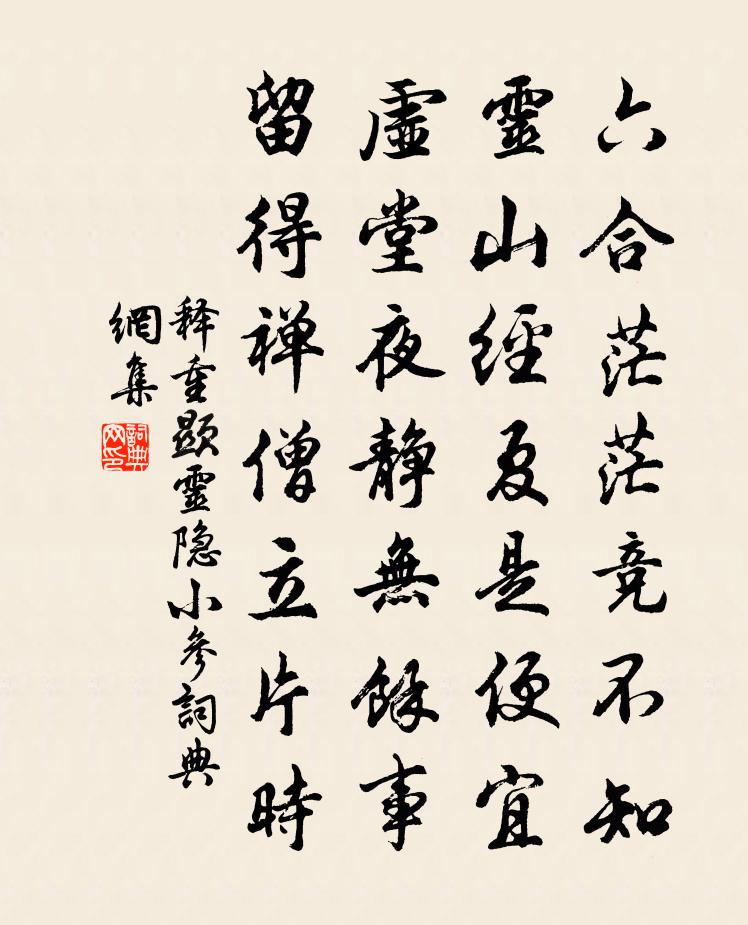 六合茫茫竞不知
靈山經夏是便宜
虛堂夜靜無餘事
留得禅僧立片時
释重顯靈隐小參詞典
網集
詞典
网印